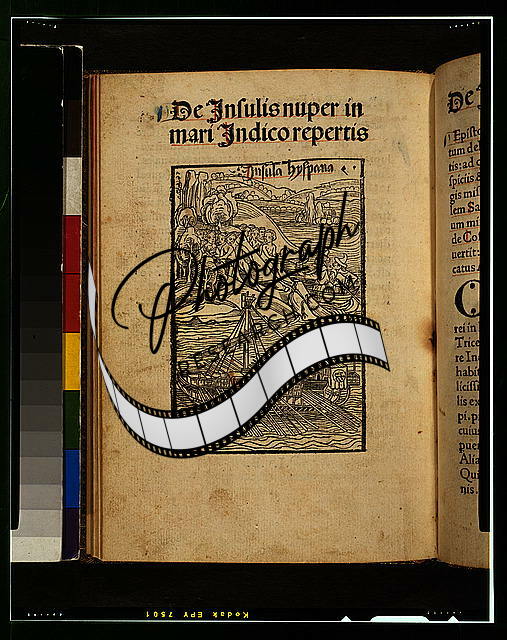 De Insulis nuper in
mari Indico repertis
Insula hyspana
Photograph
RESEARCH.COM
De
Episto
tum de
tis: ad c
spiciis
gis miss
lem Sa
um mi
de Co
uertit:
catus
C
rei in
Trice
re In
habi
liciss
lis ex
pi. p
cuius
puer
Alia
Qui
nis.
Kodak EPY 7501